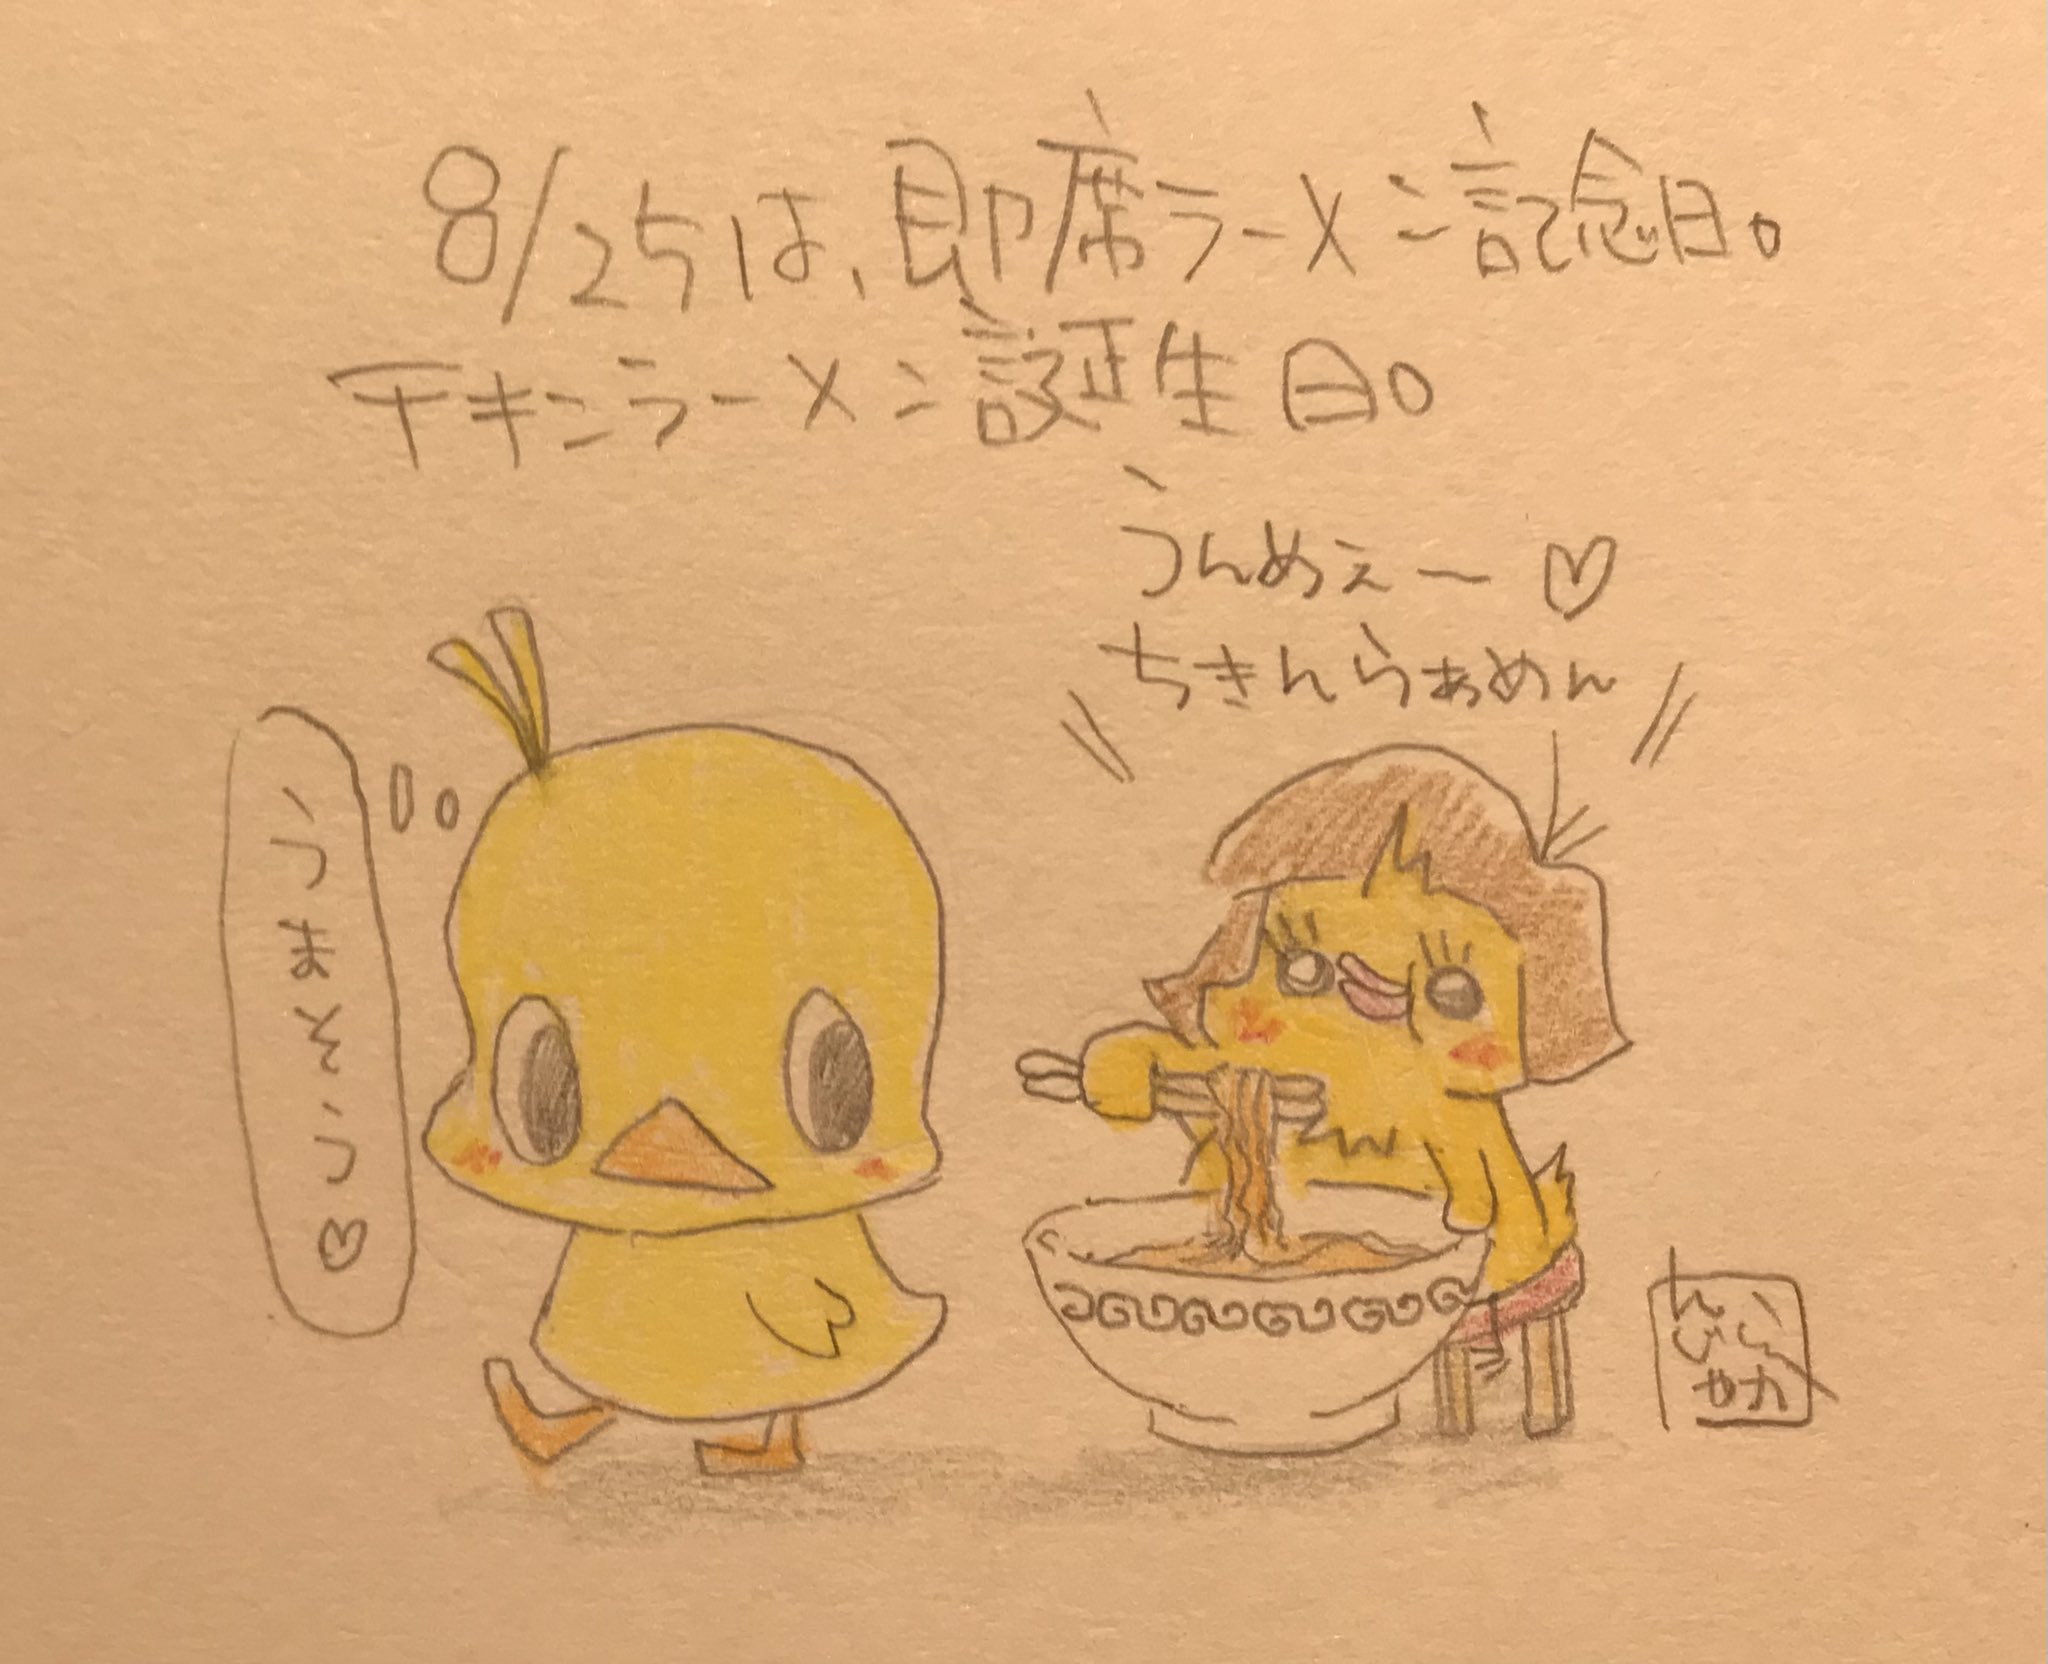 8/25は、即席ラーメン記念日。
チキンラーメン誕生日。
うんめぇー♡
ちきんらぁめん
うまそう♡